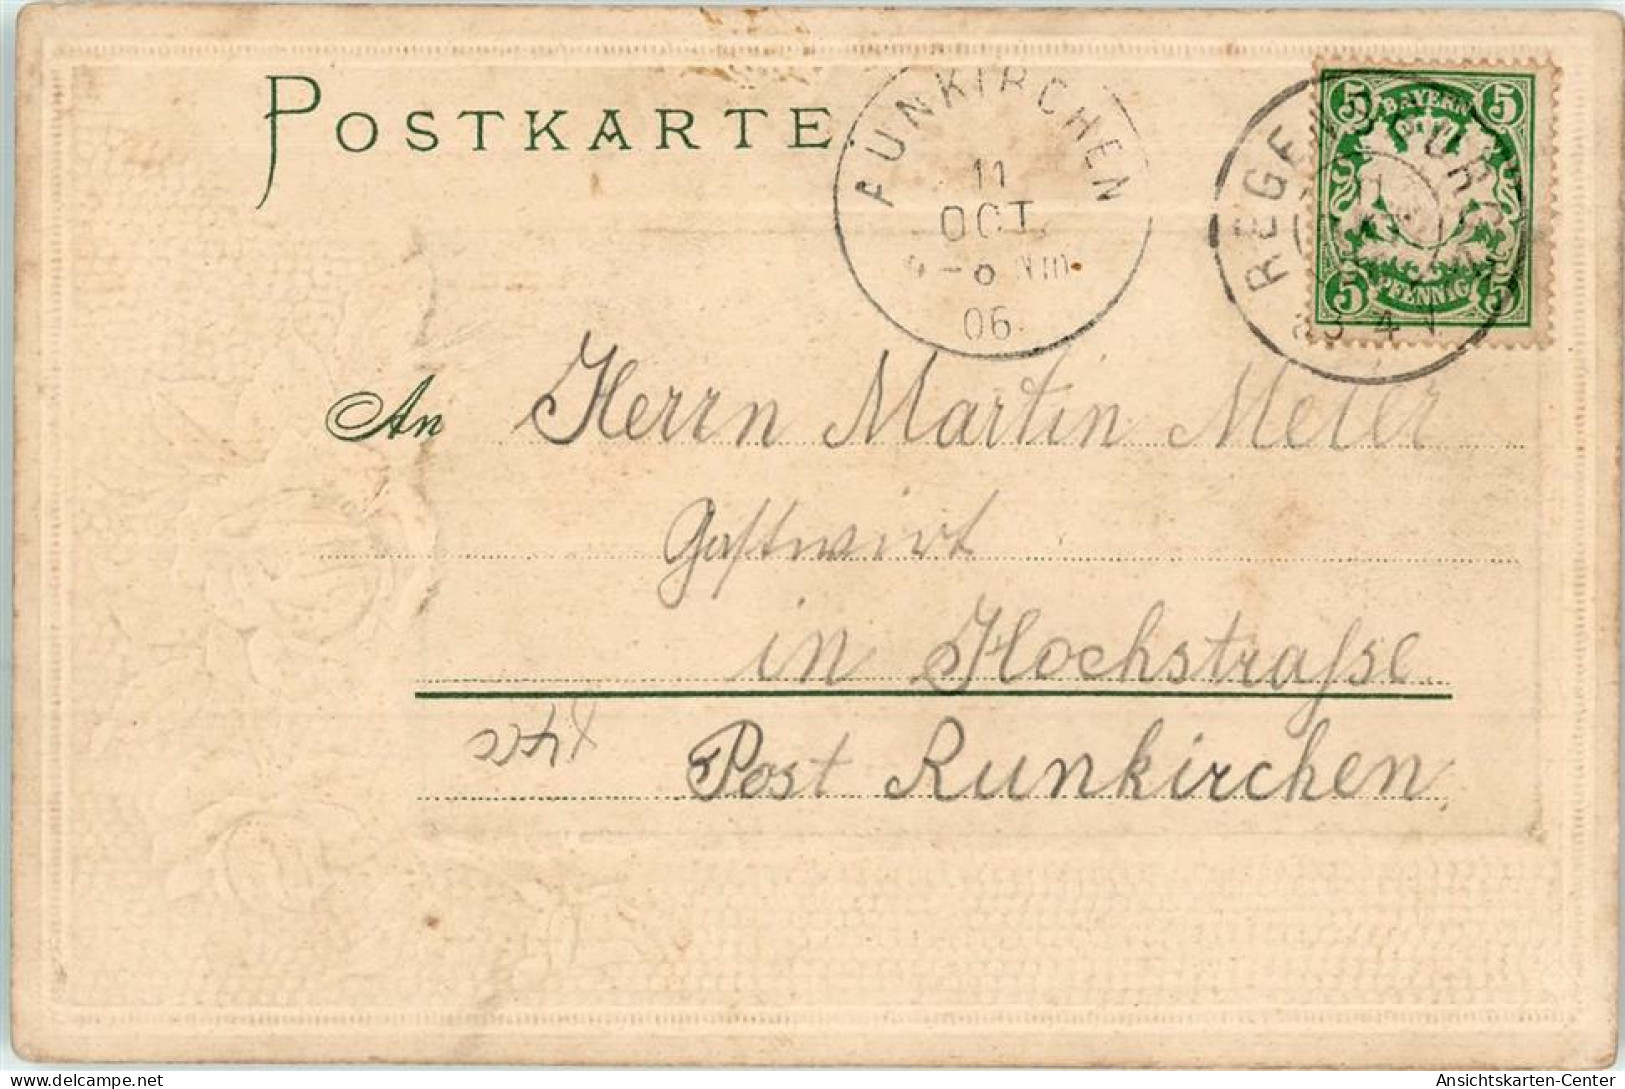 POSTKARTE
AUNKIRCHEN
11
OCT.
06
REGENSBURG
BAYERN
5 5
PFENNIG
5 5
An Herrn Martin Meier
Gaſtwirt
in Hochstraſse
Post Aunkirchen
Ansichtskarten-Center